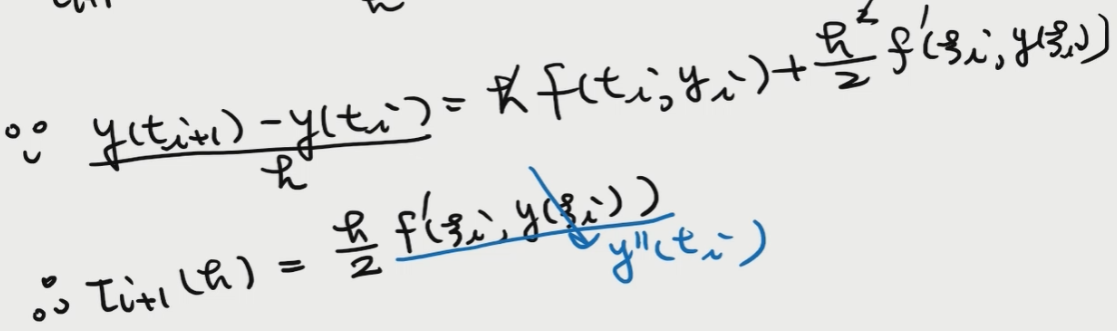 ∵ (y(t_{i+1}) - y(t_i))/h = h̸ f(t_i, y_i) + h^{2̸}/2 f'(ξ_i, y(ξ_i))
∴ τ_{i+1}(h) = h/2 f'(ξ_i, y(ξ_i))
y''(t_i)